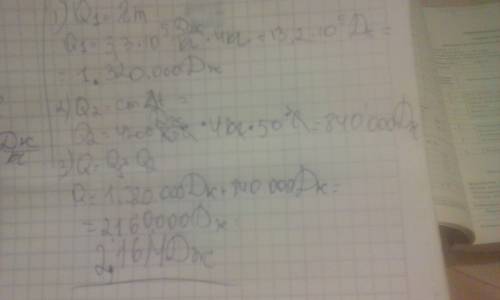 1) Q₁ = λm
Q₁ = 3,3·10⁵ Дж/кг · 4кг = 13,2·10⁵ Дж =
= 1.320.000 Дж
2) Q₂ = cmΔt =
Q₂ = 4200 · 4кг · 50°C = 840 000 Дж
Дж/кг
3) Q = Q₁ Q₂
Q = 000 Дж + 840 000 Дж =
= 2160000 Дж
2,16 МДж